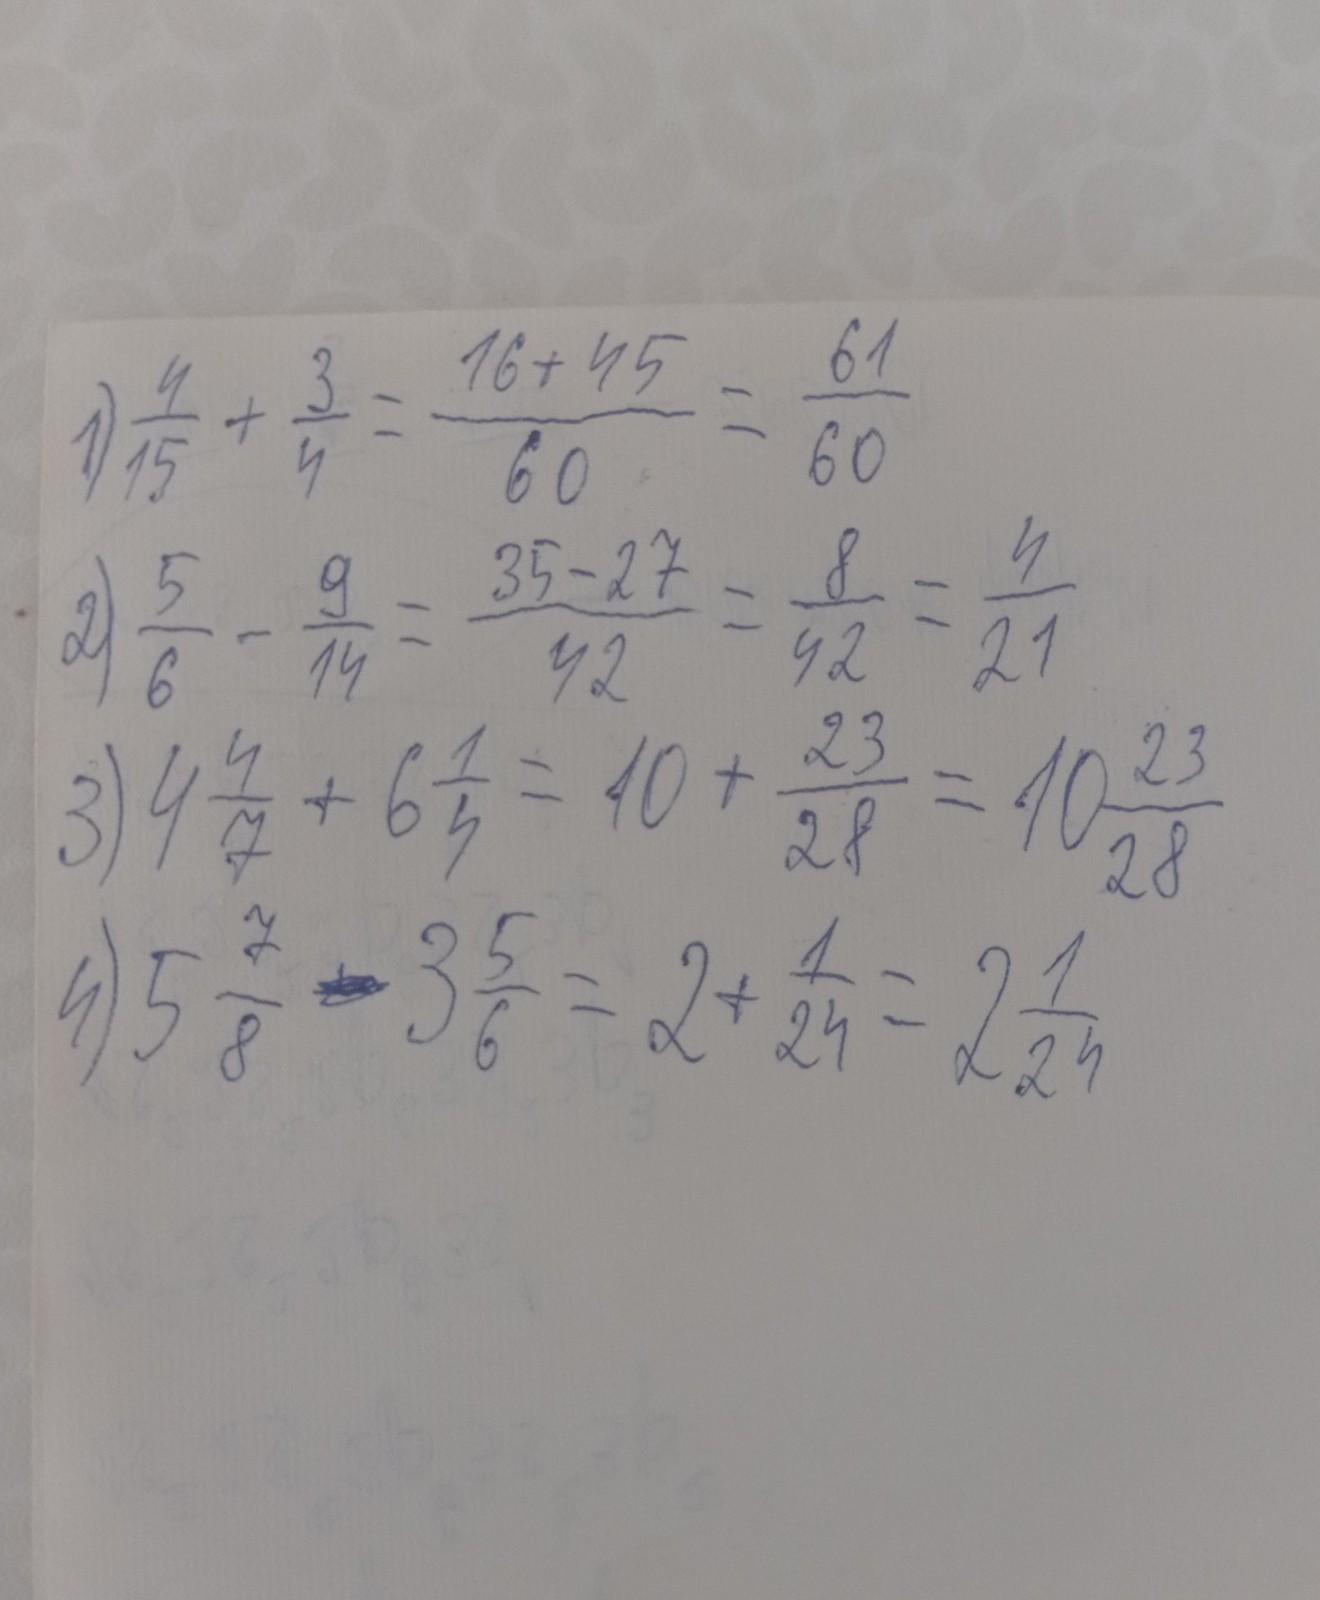 1) 4/15 + 3/4 = (16+45)/60 = 61/60
2) 5/6 - 9/14 = (35-27)/42 = 8/42 = 4/21
3) 4 4/7 + 6 1/4 = 10 + 23/28 = 10 23/28
4) 5 7/8 - 3 5/6 = 2 + 1/24 = 2 1/24